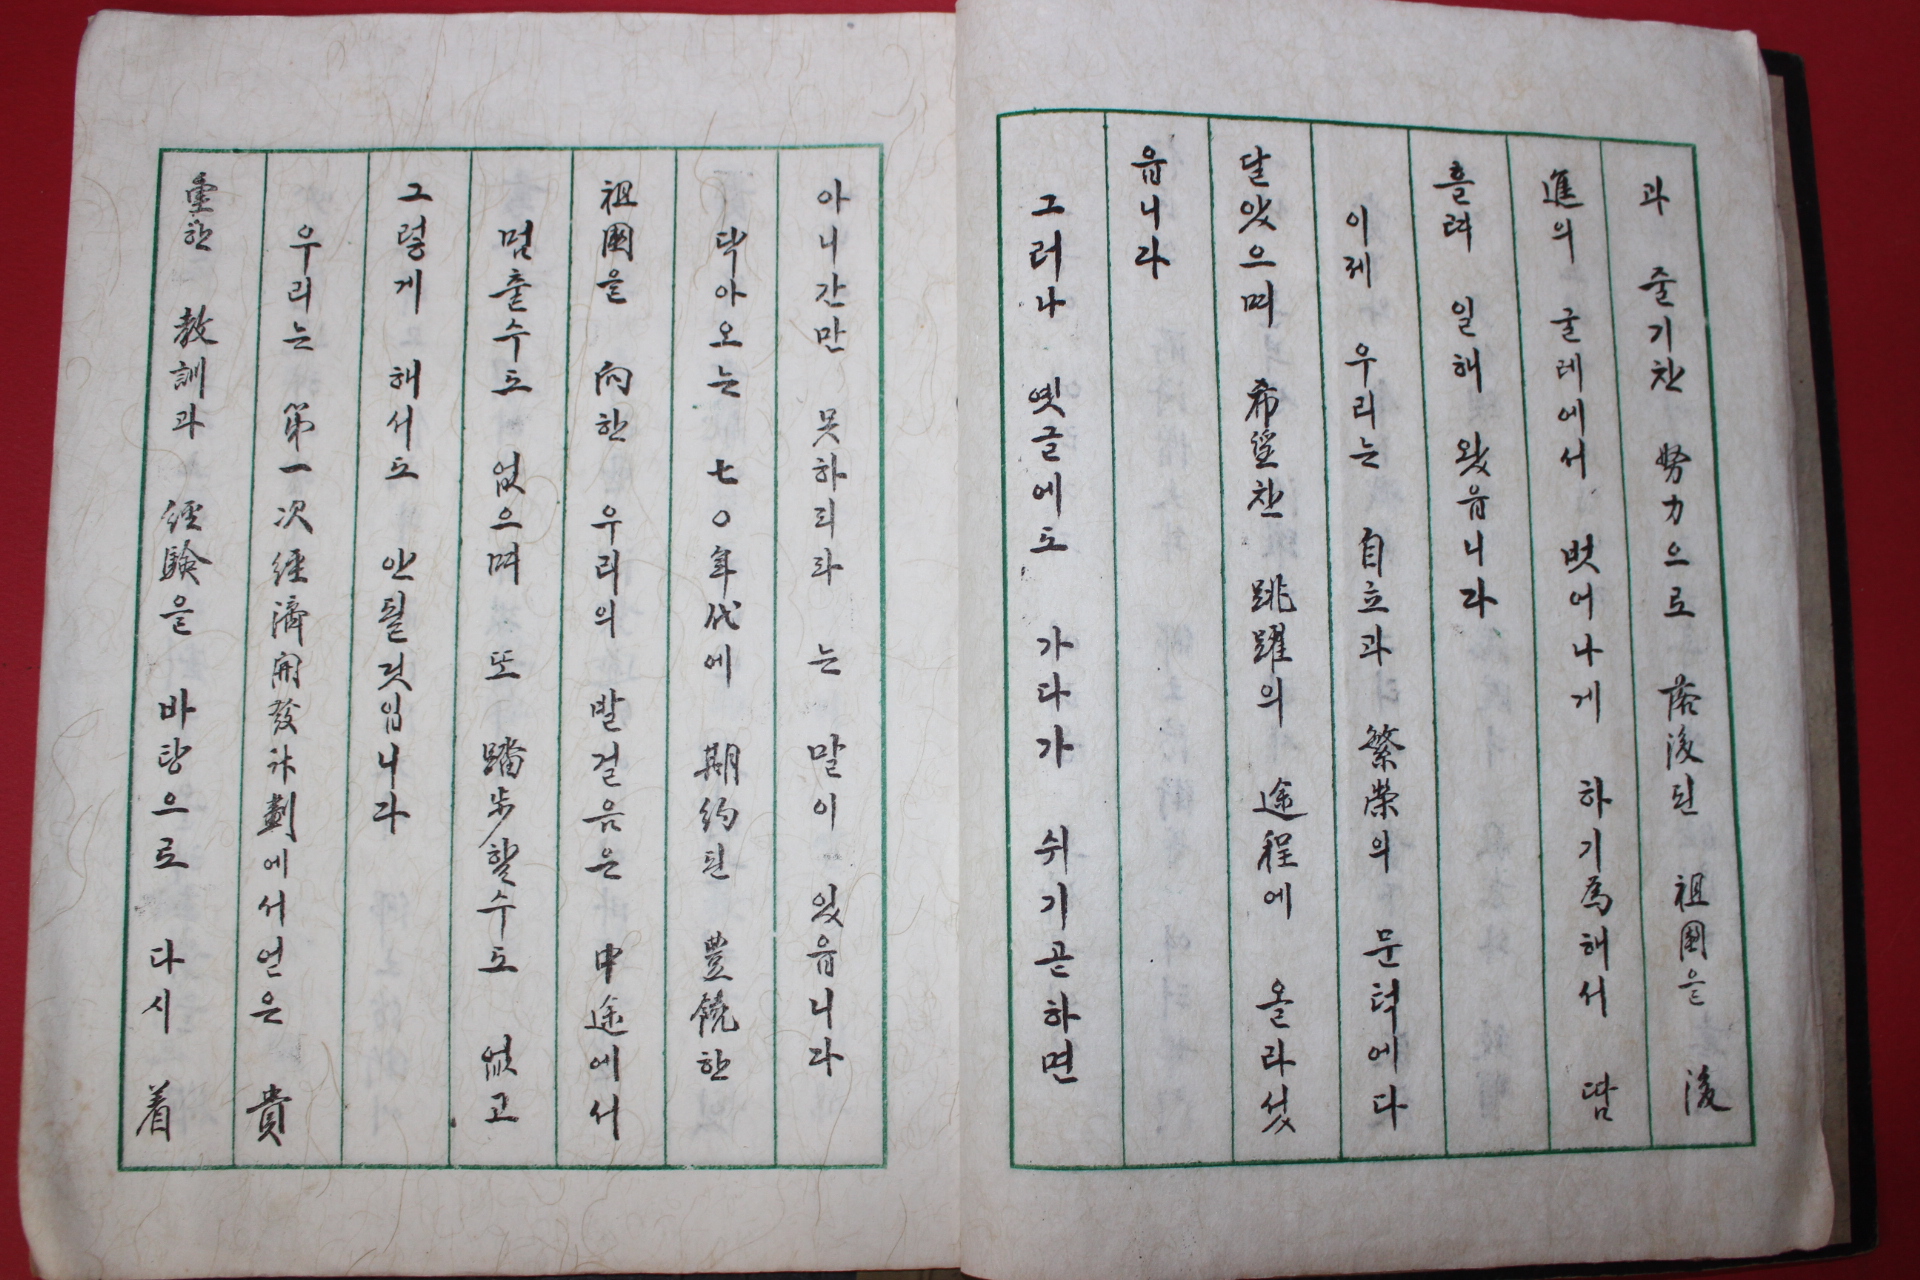 과 줄기찬 努力으로 落後된 祖國을 後
進의 굴레에서 벗어나게 하기爲해서 땀
흘려 일해 왔읍니다
이제 우리는 自立과 繁榮의 문턱에다
달았으며 希望찬 跳躍의 途程에 올라섰
읍니다
그러나 옛글에도 가다가 쉬기곧하면
아니간만 못하리라 는 말이 있읍니다
닥아오는 七〇年代에 期約된 豊饒한
祖國을 向한 우리의 발걸음은 中途에서
멈출수도 없으며 또 踏步할수도 없고
그렇게 해서도 안될것입니다
우리는 第一次經濟開發計劃에서얻은 貴
重한 敎訓과 經驗을 바탕으로 다시 着